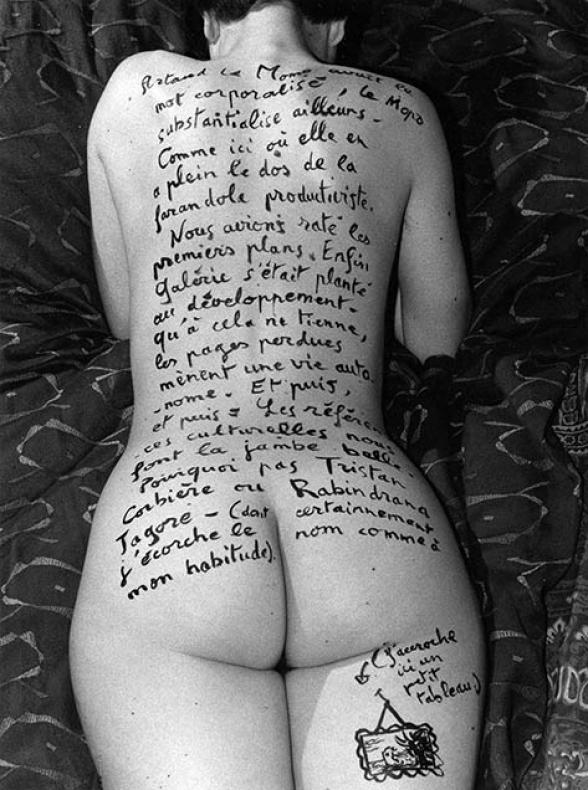 Artaud Le Momo avait le
mot corporalisé, le Mopo
substantialise ailleurs -
Comme ici où elle en
a plein le dos de la
farandole productiviste.
Nous avions raté les
premiers plans. Enfin,
Galérie s'était planté
au développement -
qu'à cela ne tienne,
les pages perdues
mènent une vie auto
-nome. Et puis,
et puis = Les référen
-ces culturelles nous
font la jambe belle.
Pourquoi pas Tristan
Corbière ou Rabindrana
Tagore - (dont certainement
j'écorche le nom comme à
mon habitude).
(j'accroche
ici un
petit
tableau.)